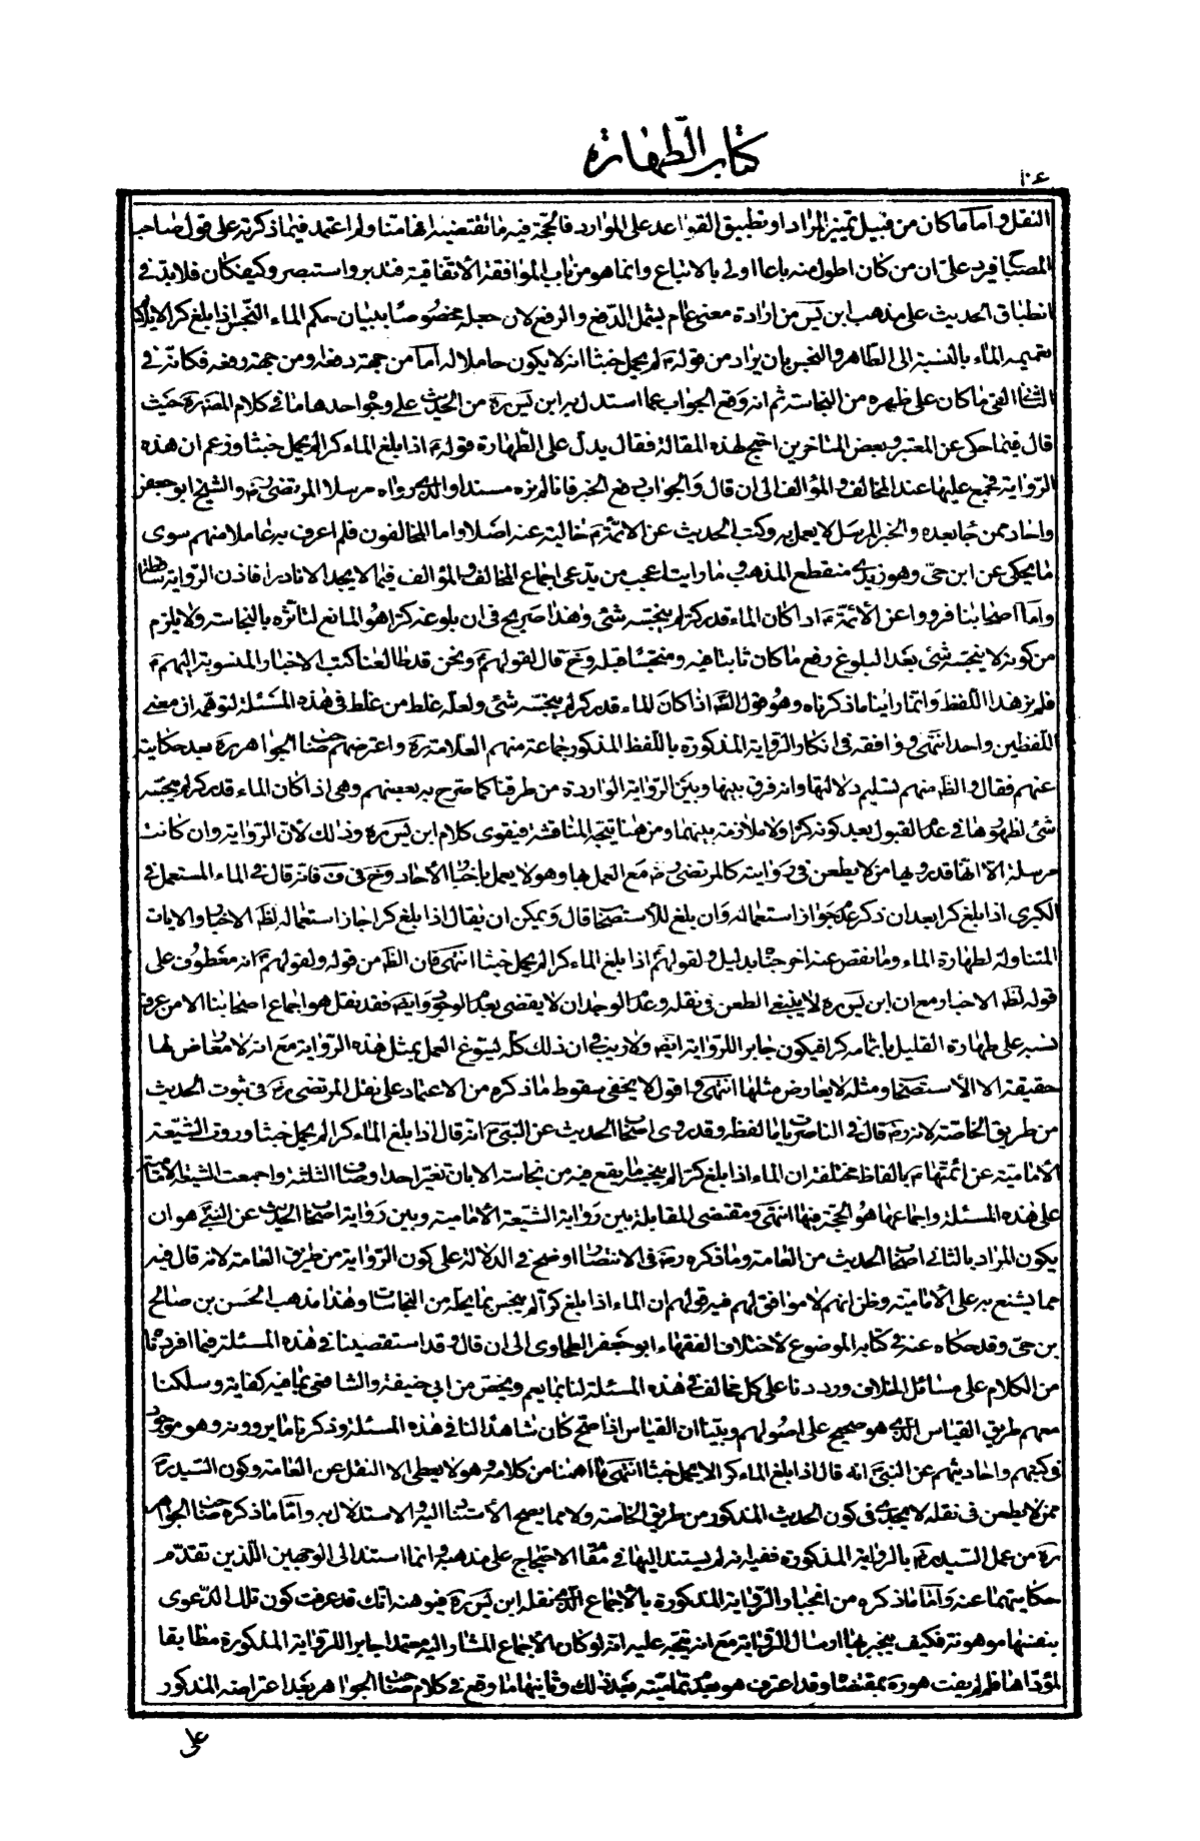 كتاب الطهارة
١٠٤
النقل وامّا ما كان من قبيل تميز المراد او تطبيق القواعد على الموارد فالحجّة فيه ما تقتضيه افهامنا ولم اعتمد فيما ذكرته على قول صاحب
المصباح على ان من كان اطول منه باعا اولى بالاتباع وانما هو من باب الموافقة الاتفاقية فتدبر واستبصر وكيف كان فلابدّ في
انطباق الحديث على مذهب ابن ادريس من ارادة معنى عام يشمل الدّفع والرفع لان جعله مخصوصا ببيان حكم الماء النّجس اذا بلغ كرا
تعميمه الماء بالنسبة الى الطّاهر والنجس بان يراد من قوله ع لم يحمل خبثا انه لا يكون حاملا له امّا من جهة دفعه ومن جهة رفعه فكانّه في
الثانى القى ما كان على ظهره من النجاسة ثم انه وقع الجواب عما استدل به ابن ادريس ره من الحديث على وجوه احدها ما في كلام المصنّف ره حيث
قال فيما حكى عن المعتبر وبعض المتاخرين احتج لهذه المقالة فقال يدلّ على الطّهارة قوله ع اذا بلغ الماء كرا لم يحمل خبثا وزعم ان هذه
الرّواية مجمع عليها عند المخالف والمؤالف الى ان قال والجواب دفع الخبر فانا لم نره مسندا والّذى رواه مرسلا المرتضى ره والشيخ ابو جعفر
واحاد ممن جاء بعده والخبر المرسل لا يعمل به وكتب الحديث عن الائمّة ع خالية عنه اصلا واما المخالفون فلم اعرف به عاملا منهم سوى
ما يحكى عن ابن حىّ وهو زيدى منقطع المذهب وما رايت اعجب ممن يدّعى اجماع المخالف والمؤالف فيما لا يجد الا نادرا فاذن الرّواية ساقطة
وامّا اصحابنا فرووا عن الائمّة ع اذا كان الماء قدر كرّ لم ينجّسه شئ وهذا صريح في ان بلوغه كرّا هو المانع لتاثّره بالنجاسة ولا يلزم
من كونه لا ينجّسه شئ بعد البلوغ رفع ما كان ثابتا فيه ومنجّسا قبله وح قال لقولهم ع ونحن قد طالعنا كتب الاخبار المنسوبة اليهم ع
فلم نر هذا اللفظ وانّما راينا ما ذكرناه وهو قول الصّادق ع اذا كان الماء قدر كر لم ينجّسه شئ ولعلّه غلط من غلط فى هذه المسئلة لتوهّمه ان معنى
اللّفظين واحد انتهى ووافقه فى انكار الرّواية المذكورة باللّفظ المذكور جماعة منهم العلامة ره واعترضهم صاحب الجواهر ره بعد حكايته
عنهم فقال والظ منهم تسليم دلالتها وانه فرق بينها وبين الرّواية الواردة من طرقنا كما صرّح به بعضهم وهى اذا كان الماء قدر كر لم ينجّسه
شئ لظهورها فى عدم القبول بعد كونه كرّا ولا ملازمة بينهما ومن هنا يتّجه المناقشة فيقوى كلام ابن ادريس ره وذلك لانّ الرّواية وان كانت
مرسلة الا انّها قد رويها من لا يطعن فى روايته كالمرتضى ره مع العمل بها وهو لا يعمل باخبار الاحاد وح فى ف فانّه قال فى الماء المستعمل فى
الكبرى اذا بلغ كرا بعد ان ذكر عدم جواز استعماله وان بلغ للاستصحاب قال ويمكن ان يقال اذا بلغ كرا جاز استعماله لظ الاخبار والايات
المتناولة لطهارة الماء وما نقص عنه اخرجناه بدليل ولقولهم اذا بلغ الماء كرا لم يحمل خبثا انتهى فان الظ من قوله ولقولهم ع انه معطوف على
قوله لظ الاخبار ومع ان ابن ادريس ره لا ينبغى الطعن فى نقله وعدم الوجدان لا يقضى بعدم الوجود وايض فقد نقل هو اجماع اصحابنا الا من عرف
نسبه على طهارة القليل باتمامه كرا فيكون جابرا للرّواية ايض ولا ريب فى ان ذلك كلّه يسوّغ العمل بمثل هذه الرّواية مع انه لا معارض لها
حقيقة الا الاستصحاب ومثله لا يعارض مثلها انتهى واقول لا يخفى سقوط ما ذكره من الاعتماد على نقل المرتضى ره فى ثبوت الحديث
من طريق الخاصّة لانه ره قال فى الناصريات ما لفظه وقد روى اصحاب الحديث عن النبىّ ص انه قال اذا بلغ الماء كرا لم يحمل خبثا وروت الشّيعة
الاماميّة عن ائمّتها ع بالفاظ مختلفة ان الماء اذا بلغ كرّا لم ينجسه ما يقع فيه من نجاسة الا بان تغيّر احد اوصافه الثلثة واجمعت الشيعة الاماميّة
على هذه المسئلة واجماعها هو الحجّة فيها انتهى ومقتضى المقابلة بين رواية الشّيعة الاماميّة وبين رواية اصحاب الحديث عن النّبىّ ص هو ان
يكون المراد بالثانى اصحاب الحديث من العامة وما ذكره ره فى الانتصار اوضح فى الدلالة على كون الرّواية من طريق العامة لانه قال فيه
مما يشنع به على الاماميّة وظنّ انهم لا موافق لهم فيه قولهم ان الماء اذا بلغ كرّا لم ينجس بما يحلّه من النجاسات وهذا مذهب الحسن بن صالح
بن حىّ وقد حكاه عنه فى كتابه الموضوع لاختلاف الفقهاء ابو جعفر الطحاوى الى ان قال وقد استقصينا فى هذه المسئلة فيما افردناه
من الكلام على مسائل الخلاف ورددنا على كل مخالف فى هذه المسئلة لنا بما يعم ويخصّ من ابى حنيفة والشافعى بما فيه كفاية وسلكنا
معهم طريق القياس الّذى هو صحيح على اصولهم وبيّنا ان القياس اذا صحّ كان شاهدا لنا فى هذه المسئلة وذكرنا ما يروونه وهو موجود
فى كتبهم واحاديثهم عن النبىّ ص انه قال اذا بلغ الماء كرا لا يحمل خبثا انتهى ما اهمّنا من كلامه وهو لا يعطى الا النقل عن العامة وكون السّيد ره
ممن لا يطعن فى نقله لا يجدى فى كون الحديث المذكور من طريق الخاصّة ولا مما يصح الاستناد اليه والاستدلال به وامّا ما ذكره صاحب الجواهر
ره من عمل السّيد ره بالرّواية المذكورة ففيه انه لم يستند اليها فى مقام الاحتجاج على مذهبه وانما استند الى الوجهين اللّذين تقدّم
حكايتهما عنه وامّا ما ذكره من انجبار الرّواية المذكورة بالاجماع الّذى نقله ابن ادريس ره فيوهنه انّك قد عرفت كون تلك الدّعوى
بنفسها موهونة فكيف ينجبر بها ارسال الرّواية مع انه يتّجه عليه انّه لو كان الاجماع المشار اليه معتمدا جابرا للرّواية المذكورة مطابقا
لمؤدّاها فلم لم يفت هو ره بمقتضاه وقد اعترف هو بعدم تماميّته بعد ذلك وثانيها ما وقع فى كلام صاحب الجواهر بعد اعتراضه المذكور
على